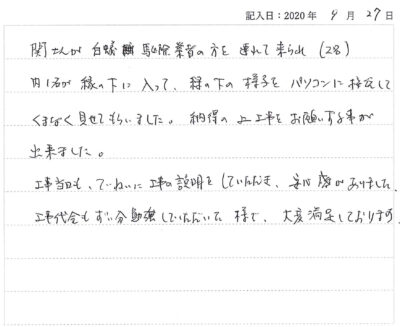 記入日：2020年 4月 27日
関さんが 白蟻 駆除業者の方を 連れて来られ (2名)
内1名が 縁の下に 入って、縁の下の 様子を パソコンに 接続して
くまなく 見せてもらいました。納得の上工事を お願いする事が
出来ました。
工事当日も、ていねいに 工事の説明を していただき、安心感がありました。
工事代金も ずい分 勉強していただいた 様で、大変満足しております